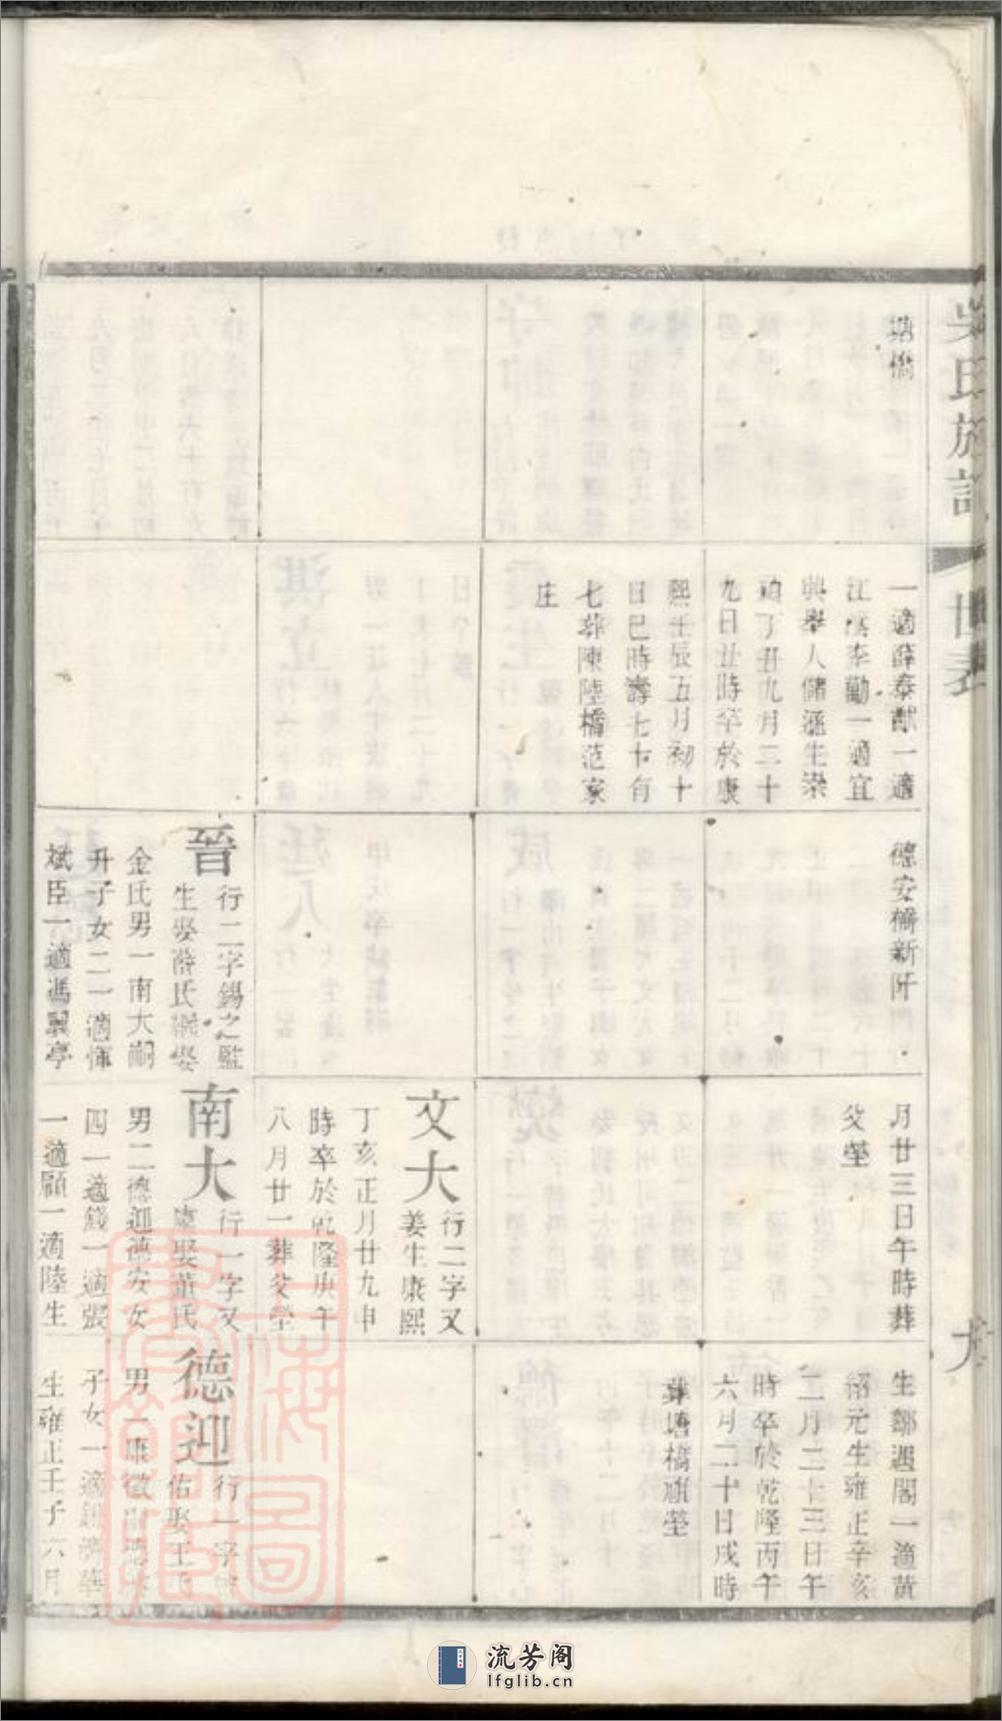 吳氏族譜
世表
塘橋
一適薛泰猷一適
江
李勤一適宜
興舉人儲
生崇
禎丁丑九月二十
九日丑時卒於康
熙壬辰五月初十
日巳時壽七十有
七葬陳陸橋范家
庄
德安橋新阡
晉
行二字錫之監
生娶薛氏繼娶
金氏男一南大嗣
升子女二一適惲
斌臣一適馮
亭
月廿三日午時葬
父塋
文大
行二字又
姜生康熙
丁亥正月廿九申
時卒於乾隆庚午
八月廿一葬父塋
南大
行一字又
康娶蕭氏
男二德迎德安女
四一適錢一適張
一適顧一適陸生
生鄒遇閣一適黃
紹元生雍正辛亥
二月二十三日午
時卒於乾隆丙午
六月二十日戌時
葬塘橋祖塋
德迎
行一字
佑娶王氏
男一康
子女一適
生雍正壬子六月
上海圖書館藏
流芳阁
lfglib.cn